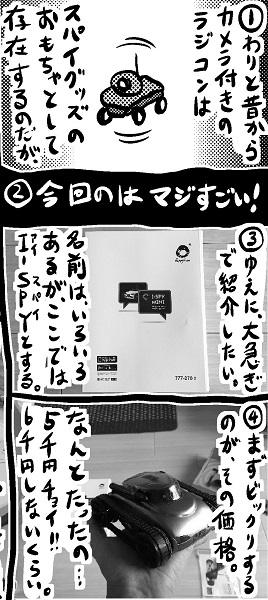 ①わりと昔から
カメラ付きの
ラジコンは
スパイグッズの
おもちゃとして
存在するのだが、
②今回のはマジすごい!
③ゆえに、大急ぎ
で紹介したい。
I-SPY
MINI
777-270
名前は、いろいろ
あるが、ここでは
アイ スパイ
I-SPYとする。
④まずビックリする
のが、その価格。
なんとたったの…
5千円チョイ!!
6千円しないくらい。